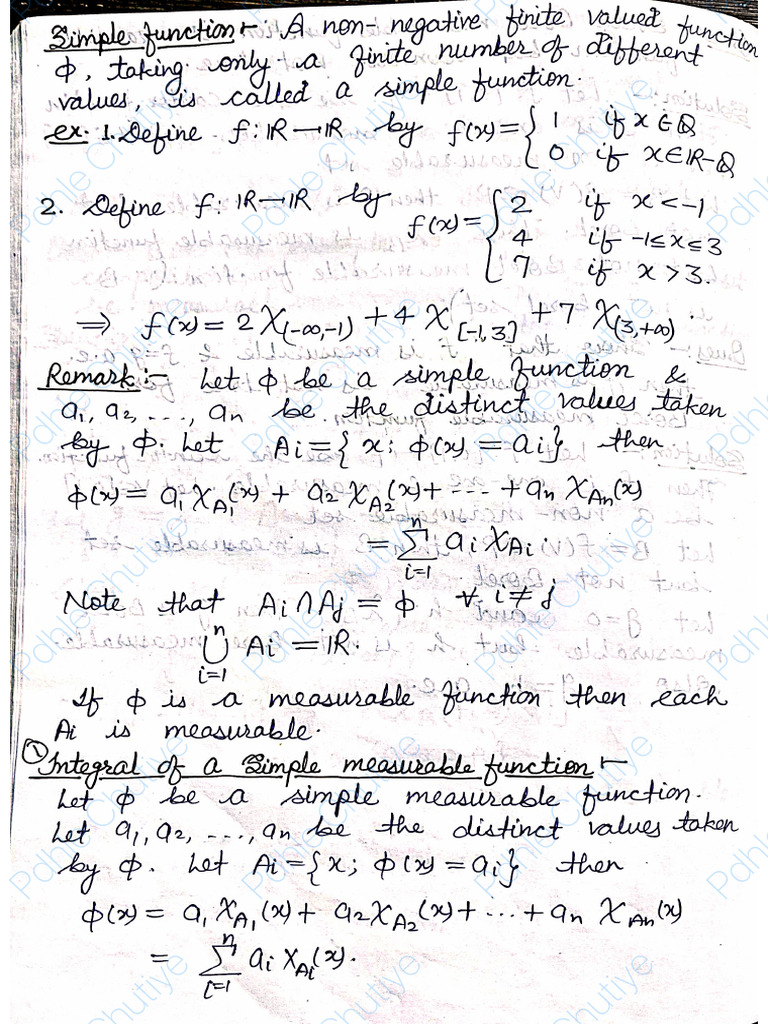 Simple function:- A non-negative finite valued function
ϕ, taking only a finite number of different
values, is called a simple function.
ex. 1. Define f: ℝ → ℝ by f(x) = { 1 if x ∈ ℚ
0 if x ∈ ℝ-ℚ
2. Define f: ℝ → ℝ by
f(x) = { 2 if x < -1
4 if -1 ≤ x ≤ 3
7 if x > 3.
⇒ f(x) = 2 χ_(-∞,-1) + 4 χ_[-1,3] + 7 χ_(3,+∞).
Remark:- Let ϕ be a simple function &
a₁, a₂, ..., an be the distinct values taken
by ϕ. Let Ai = { x; ϕ(x) = ai } then
ϕ(x) = a₁ χ_A₁(x) + a₂ χ_A₂(x) + ... + an χ_An(x)
= ∑_{i=1}^{n} ai χ_Ai.
Note that Ai ∩ Aj = ϕ ∀ i ≠ j
⋃_{i=1}^{n} Ai = ℝ.
If ϕ is a measurable function then each
Ai is measurable.
① Integral of a Simple measurable function:-
Let ϕ be a simple measurable function.
Let a₁, a₂, ..., an be the distinct values taken
by ϕ. Let Ai = { x; ϕ(x) = ai } then
ϕ(x) = a₁ χ_A₁(x) + a₂ χ_A₂(x) + ... + an χ_An(x)
= ∑_{i=1}^{n} ai χ_Ai(x).
Pdhle Chutiye